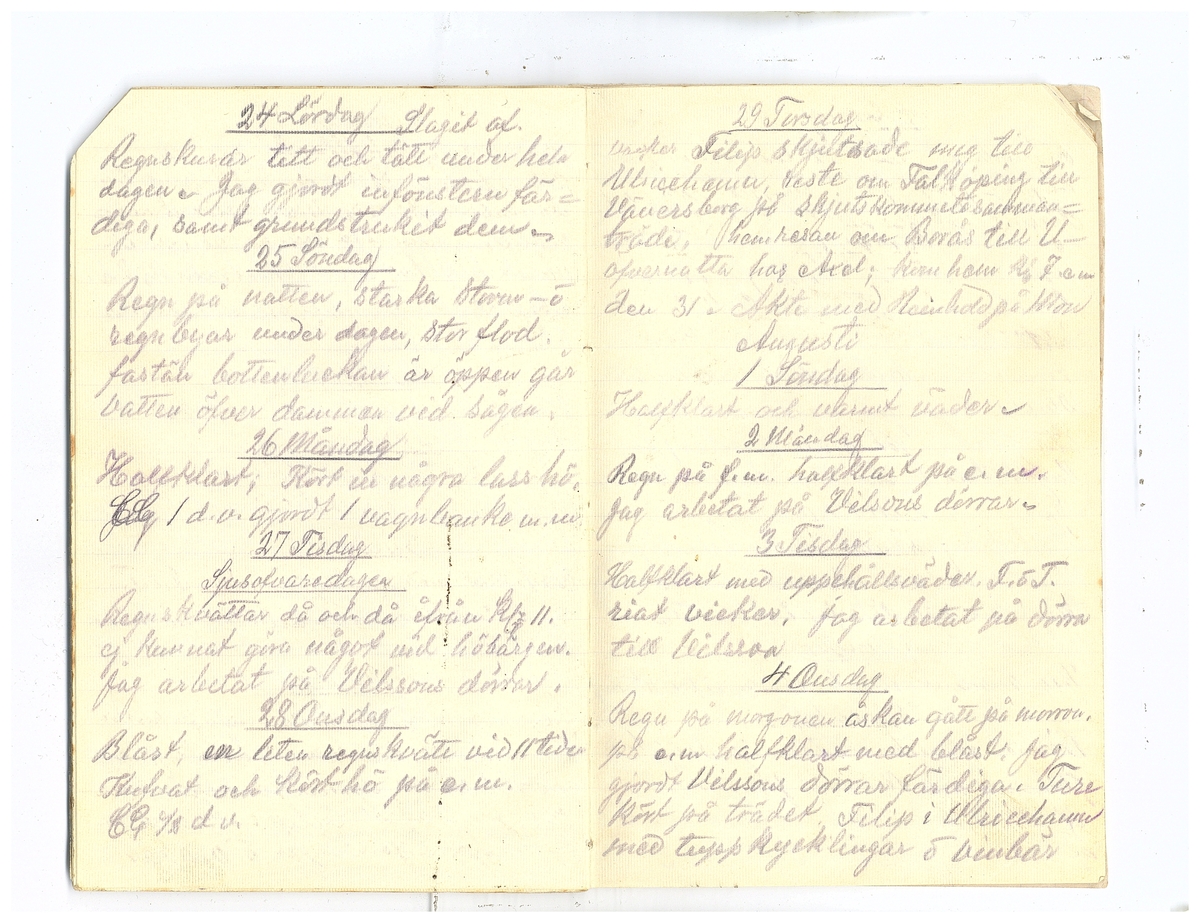 24 Lördag Slagit af.
Regnskurar titt och tätt under hela
dagen. Jag gjordt infönstern fär=
diga, samt grundstrukit dem.
25 Söndag
Regn på natten, starka storm- ö
regnbyar under dagen, stor flod.
fastän bottenluckan är öppen går
vatten öfver dammen vid sågen.
26 Måndag
Halfklart; Kört in några lass hö.
1 d.v. gjordt 1 vagnbanke m.m
27 Tisdag
Sjusofvaredagen
Regnskvättar då och då från Kl 11.
ej kunnat göra något vid höbärgen.
Jag arbetat på Vilssons dörrar.
28 Onsdag
Blåst, en liten regnskväte vid 11 tiden
Kufvat och kört hö på e.m.
1/2 d.v.
29 Torsdag
Filip skjutsade mig till
Ulricehamn, reste om Falköping till
Vänersborg på skjutskommitésamman=
träde, hemresan om Borås till U-
öfvernatta hos Axel; kom hem Kl 7 e.m
den 31. Åkte med Reinhold på Mon
Augusti
1 Söndag
Halfklart och varmt väder.
2 Måndag
Regn på f.m. halfklart på e.m.
Jag arbetat på Vilsons dörrar.
3 Tisdag
Halfklart med uppehållsväder. F. ö T.
riat vicker. Jag arbetat på dörra
till Vilsson
4 Onsdag
Regn på morgonen åskan gått på morron.
på e.m halfklart med blåst. Jag
gjordt Vilssons dörrar färdiga. Ture
kört på trädet, Filip i Ulricehamn
med tuppkycklingar ö vinbär